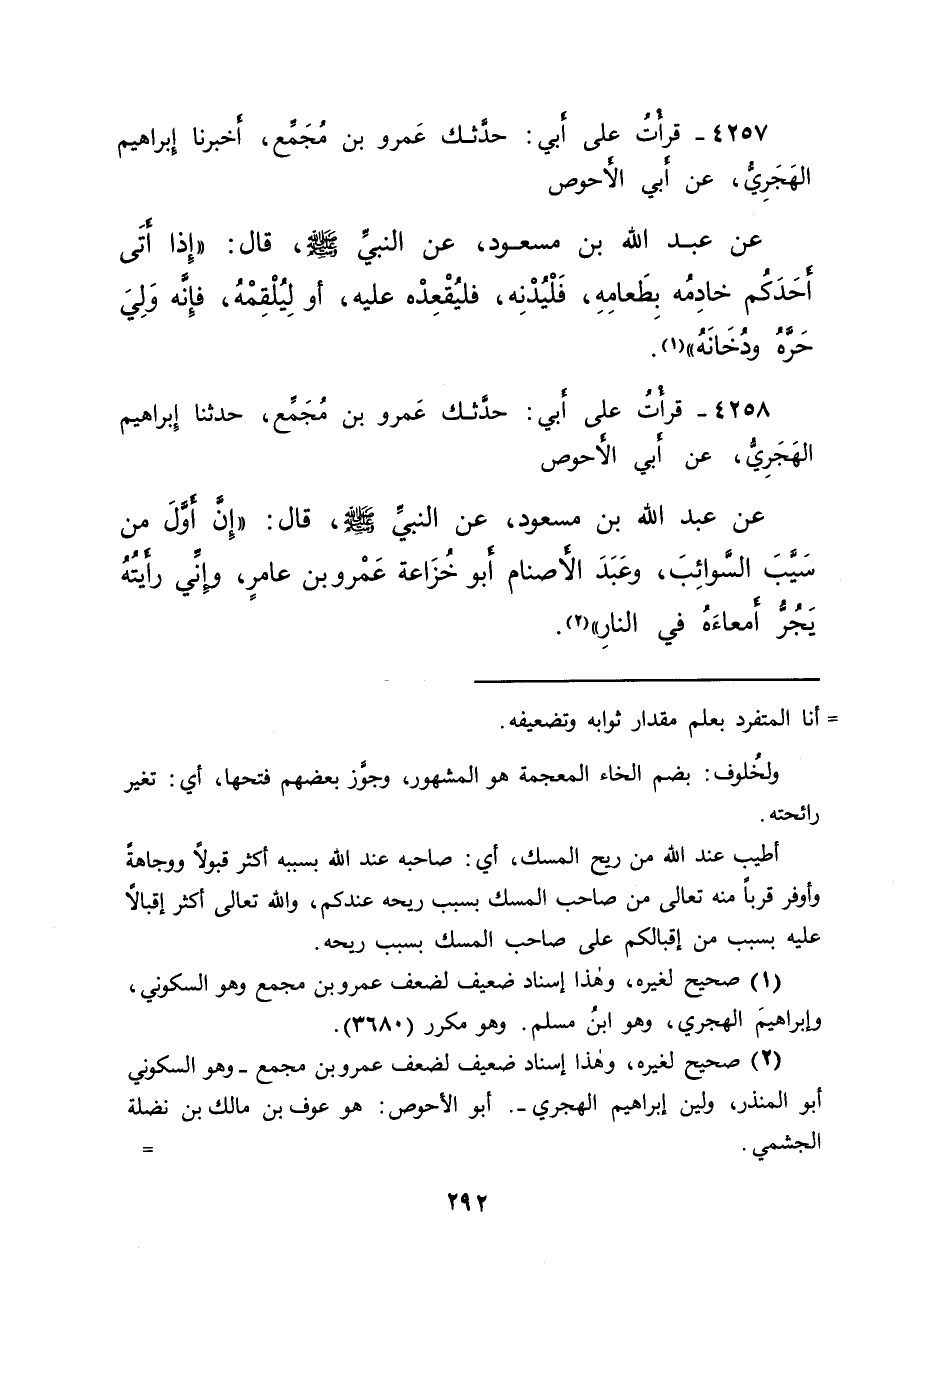 ٤٢٥٧ - قرأْتُ على أَبي: حدَّثـك عَمرو بن مُجَمِّع، أَخبرنا إِبراهيم
الهَجَرِيُّ، عن أَبي الأَحوص
عن عبـد الله بن مسعـود، عن النبيِّ ﷺ، قال: «إِذا أَتَى
أَحَدَكُم خادِمُه بِطَعامِهِ، فَلْيُدْنِه، فليُقْعِدْه عليه، أو لِيُلْقِمْهُ، فإِنَّه وَلِيَ
حَرَّهُ ودُخَانَهُ»(١).
٤٢٥٨ - قرأْتُ على أَبي: حدَّثـك عَمرو بن مُجَمِّع، حدثنا إِبراهيم
الهَجَرِيُّ، عن أَبي الأَحوص
عن عبد الله بن مسعود، عن النبيِّ ﷺ، قال: «إِنَّ أَوَّلَ من
سَيَّبَ السَّوائِبَ، وعَبَدَ الأَصنام أَبو خُزَاعة عَمْرو بن عامرٍ، وإِنِّي رأَيتُهُ
يَجُرُّ أَمعاءَهُ في النارِ»(٢).
= أنا المتفرد بعلم مقدار ثوابه وتضعيفه.
ولخُلوف: بضم الخاء المعجمة هو المشهور، وجوَّز بعضهم فتحها، أي: تغير
رائحته.
أطيب عند الله من ريح المسك، أي: صاحبه عند الله بسببه أكثر قبولاً ووجاهةً
وأوفر قرباً منه تعالى من صاحب المسك بسبب ريحه عندكم، والله تعالى أكثر إقبالاً
عليه بسبب من إقبالكم على صاحب المسك بسبب ريحه.
(١) صحيح لغيره، وهٰذا إسناد ضعيف لضعف عمرو بن مجمع وهو السكوني،
وإبراهيمَ الهجري، وهو ابنُ مسلم. وهو مكرر (٣٦٨٠).
(٢) صحيح لغيره، وهٰذا إسناد ضعيف لضعف عمرو بن مجمع - وهو السكوني
أبو المنذر، ولين إبراهيم الهجري -. أبو الأحوص: هو عوف بن مالك بن نضلة
الجشمي. =
٢٩٢